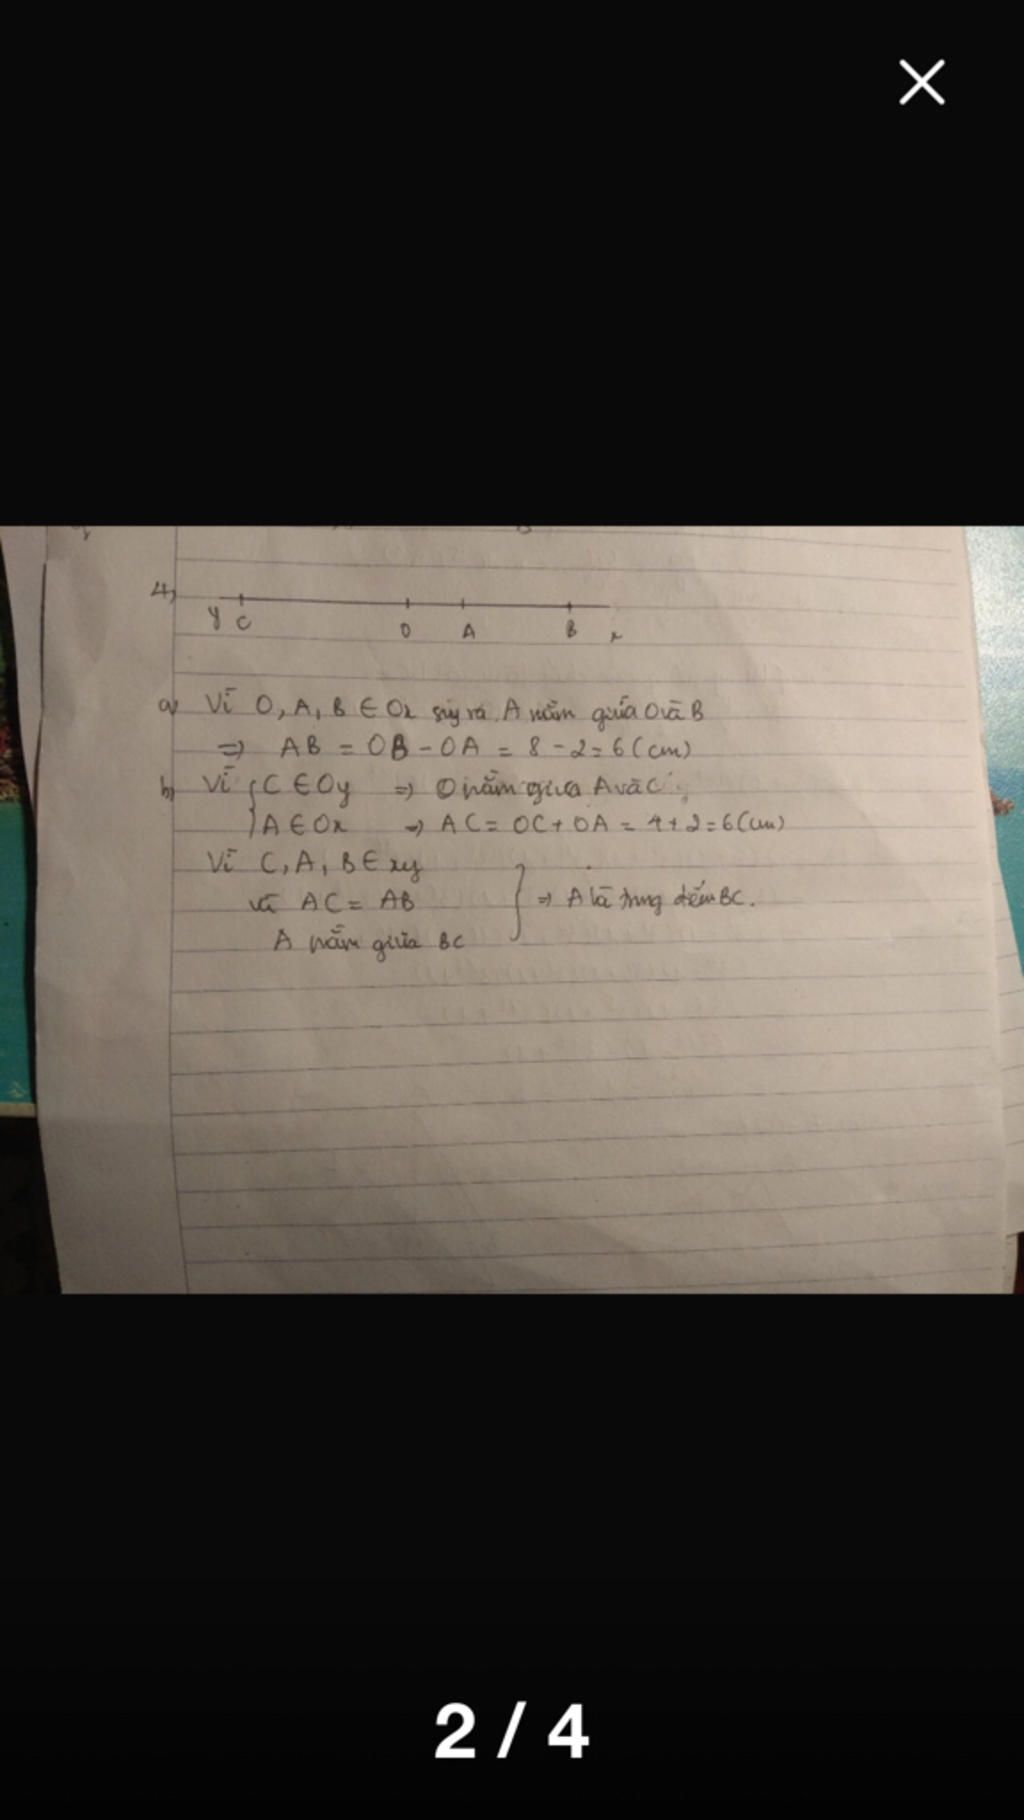 4)
y C O A B x
a) Vì O, A, B ∈ Ox suy ra A nằm giữa O và B
=> AB = OB - OA = 8 - 2 = 6 (cm)
b) Vì { C ∈ Oy => O nằm giữa A và C
A ∈ Ox => AC = OC + OA = 4 + 2 = 6 (cm)
Vì C, A, B ∈ xy
và AC = AB } => A là trung điểm BC.
A nằm giữa BC
2 / 4